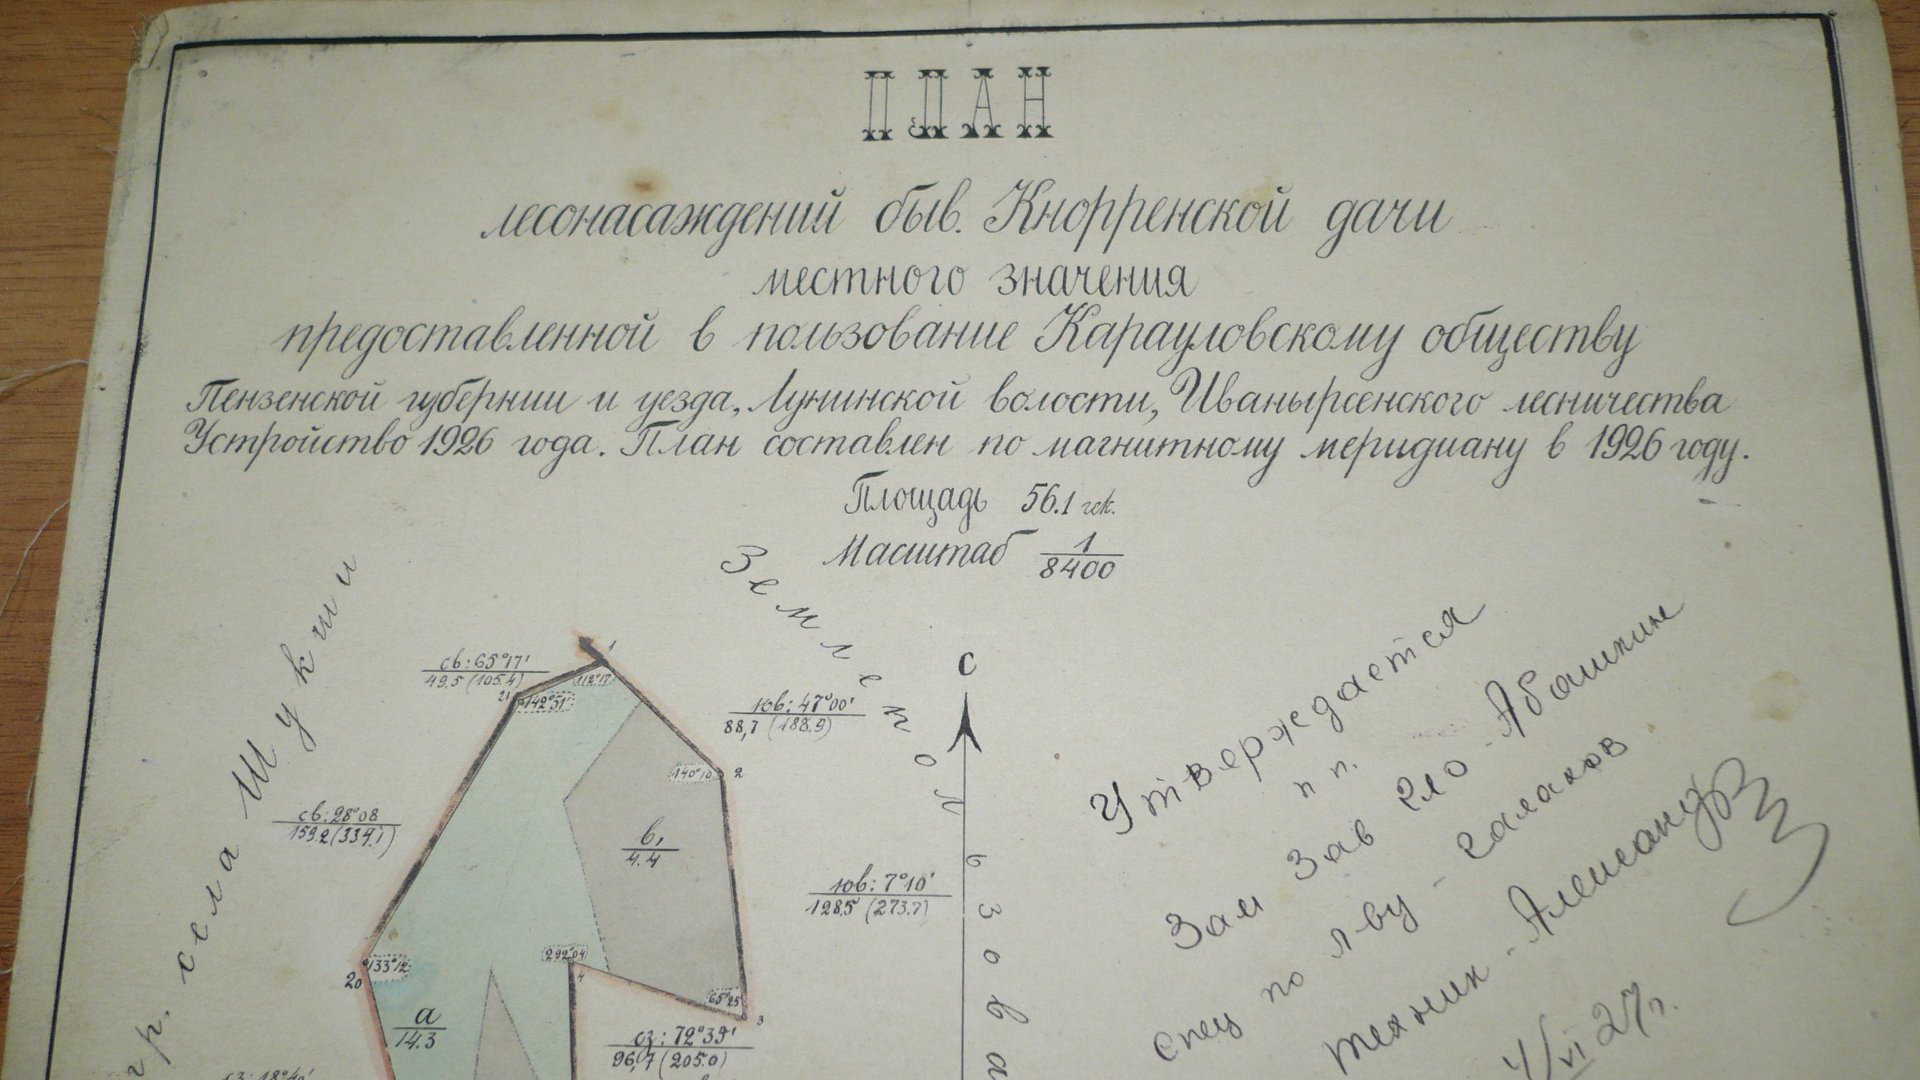 ПЛАН
лесонасаждений быв. Кнорренской дачи
местного значения
предоставленной в пользование Карауловскому обществу
Пензенской губернии и уезда, Лунинской волости, Иванырсенского лесничества
Устройство 1926 года. План составлен по магнитному меридиану в 1926 году.
Площадь 56.1 гек.
Масштаб 1/8400
гр. села Шукши
Землепользова
С
1
св: 65°17'
49,5 (105.4)
21
142°51'
112°17'
юв: 47°00'
88,7 (188.9)
140°10'
2
св: 28°08
159.2 (334.1)
в,
4.4
юв: 7°10'
128.5 (273.7)
20
133°12'
292°04'
4
65°25'
3
а
14.3
сз: 72°39'
96,7 (205.0)
Утверждается
п п.
Зам Зав Гло - Абашкин
Спец по лву -
Техник -
4/VI 27 г.